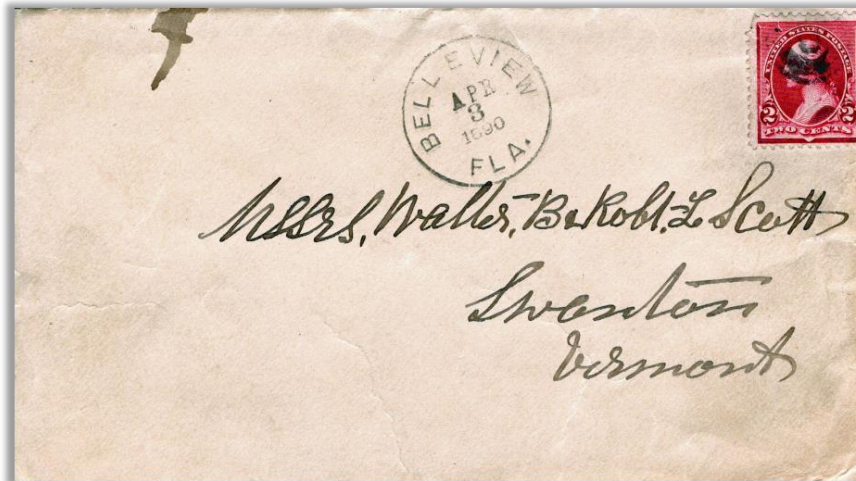 BELLEVIEW
APR
3
1890
FLA.
UNITED STATES POSTAGE
2 2
TWO CENTS
Messrs, Walter, B & Robt. L Scott
Swanton
Vermont